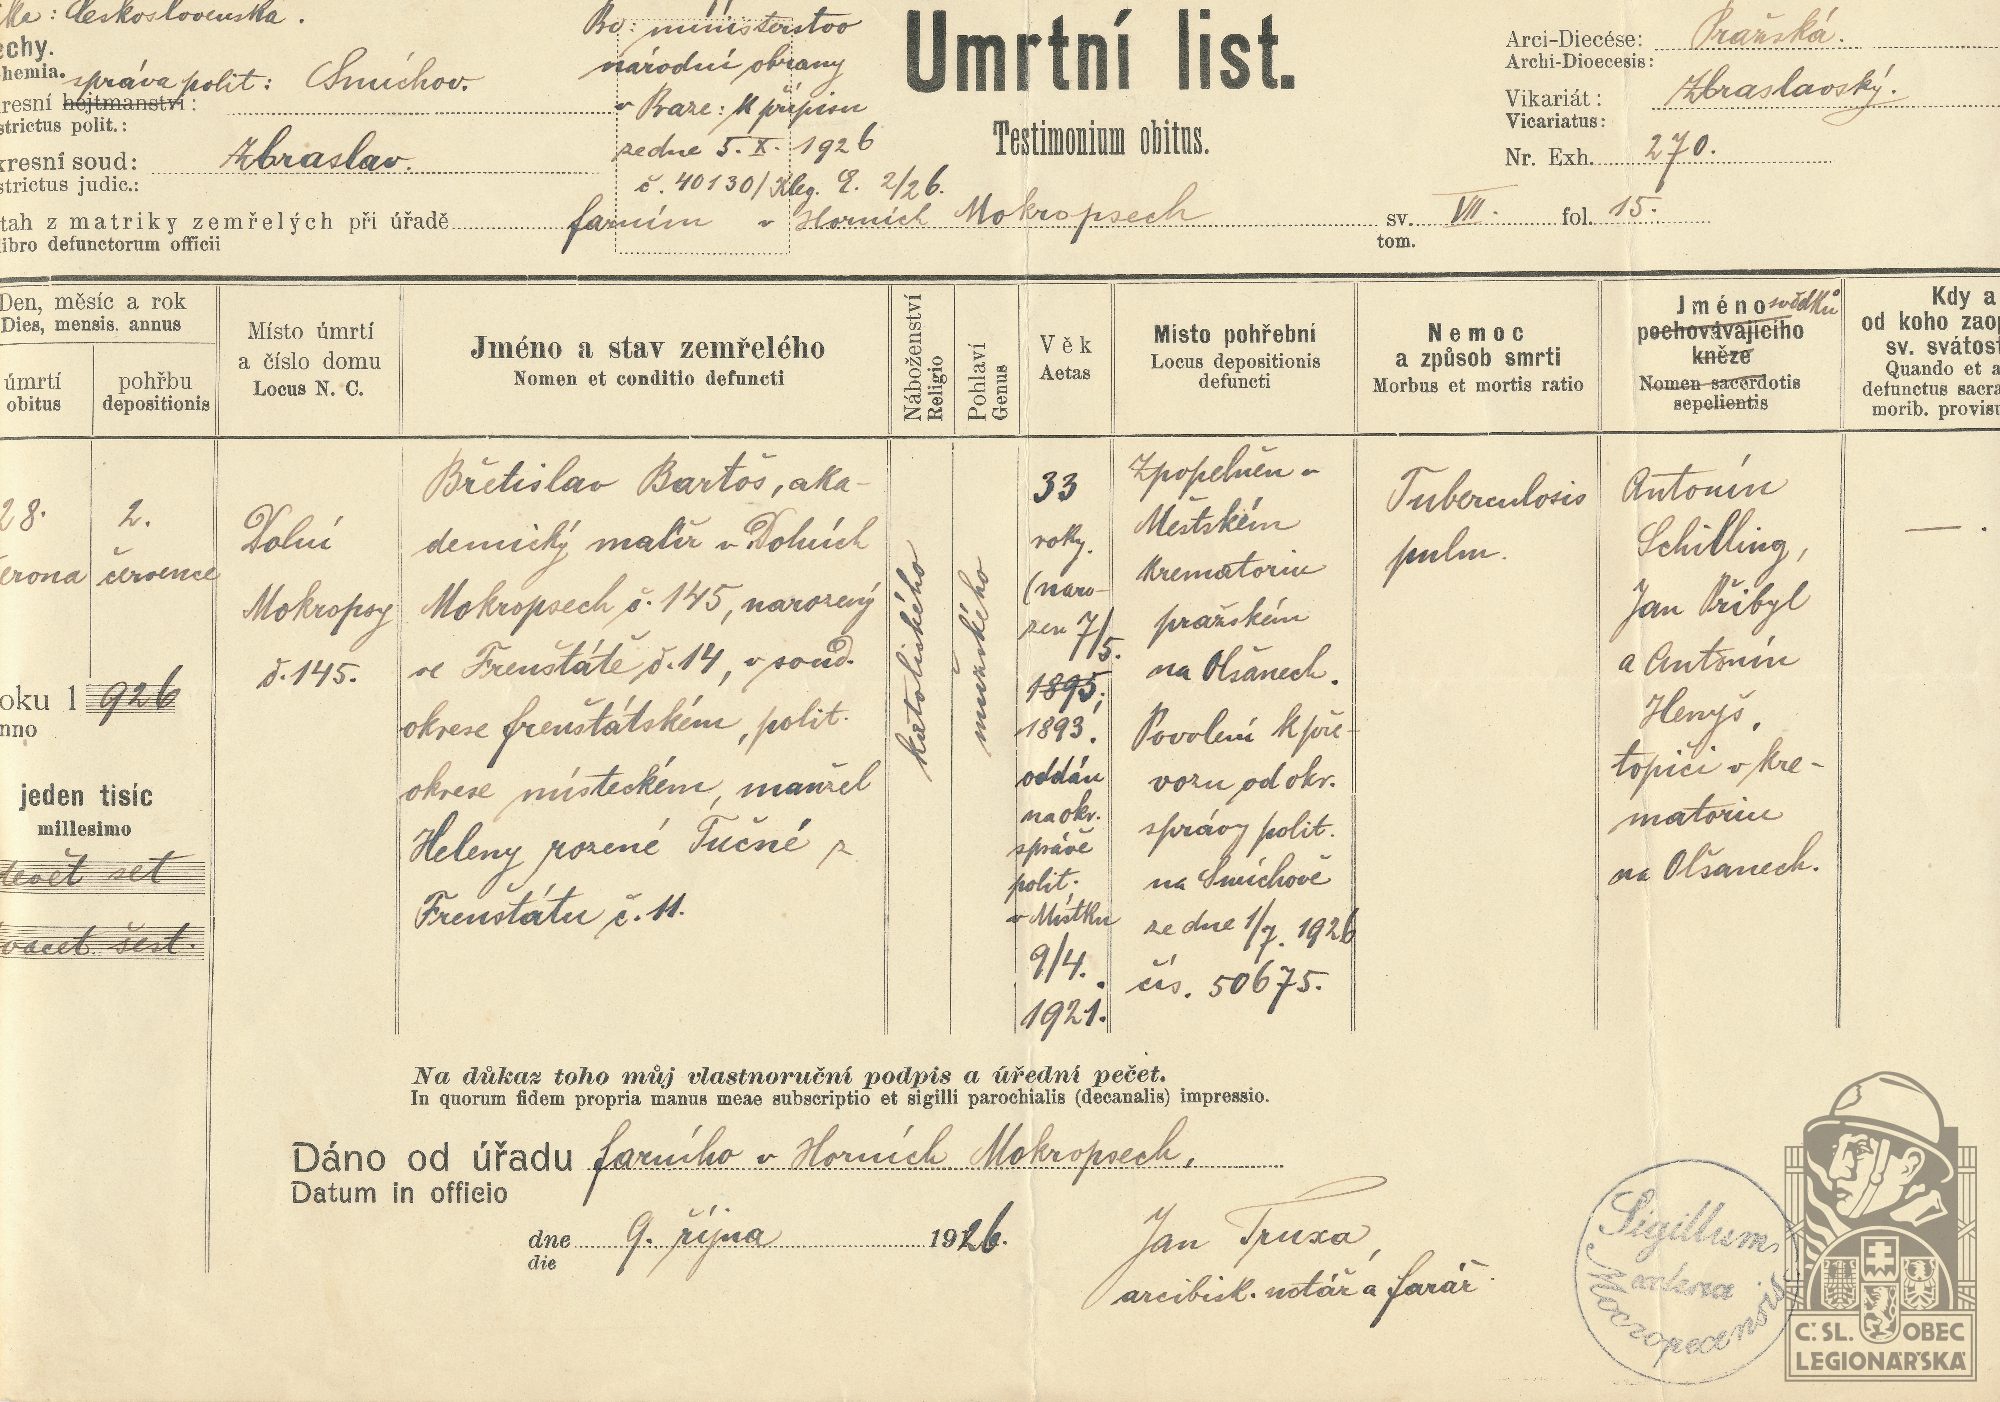 Československá.
echy.
hemia.
správa polit: Smíchov.
resní hejtmanství:
strictus polit.:
kresní soud: Zbraslav.
strictus judic.:
tah z matriky zemřelých při úřadě farním v Horních Mokropsech sv. VII. fol. 15.
libro defunctorum officii
tom.
ministerstvo
národní obrany
v Praze: K přípisu
ze dne 5. X. 1926
č. 40130/Kleg. 2/26.
Umrtní list.
Testimonium obitus.
Arci-Diecése: Pražská.
Archi-Dioecesis:
Vikariát: Zbraslavský.
Vicariatus:
Nr. Exh. 270.
Den, měsíc a rok
Dies, mensis. annus
úmrtí
obitus
pohřbu
depositionis
Místo úmrtí
a číslo domu
Locus N. C.
Jméno a stav zemřelého
Nomen et conditio defuncti
Náboženství
Religio
Pohlaví
Genus
Věk
Aetas
Místo pohřební
Locus depositionis
defuncti
Nemoc
a způsob smrti
Morbus et mortis ratio
Jméno svědků
pochovávajícího
kněze
Nomen sacerdotis
sepelientis
Kdy a
od koho zaop
sv. svátost
Quando et a
defunctus sacra
morib. provisu
28.
erona
2.
července
oku 1926
nno
jeden tisíc
millesimo
devět set
vacet šest.
Dolní
Mokropsy
č. 145.
Břetislav Bartoš, aka-
demický malíř v Dolních
Mokropsech č. 145, narozený
ve Frenštátě č. 14, v soud.
okrese frenštátském, polit.
okrese místeckém, manžel
Heleny rozené Tučné z
Frenštátu č. 11.
katolického
mužského
33
roky.
(naro-
zen 7/5.
1895;
1893.
oddán
na okr.
správě
polit.
v Místku
9/4.
1921.
Zpopelněn v
Městském
krematoriu
pražském
na Olšanech.
Povolení k pře-
vozu od okr.
správy polit.
na Smíchově
ze dne 1/7. 1926
čís. 50675.
Tuberculosis
pulm.
Antonín
Schilling,
Jan Přibyl
a Antonín
Henyš,
topiči v kre-
matoriu
na Olšanech.
— .
Na důkaz toho můj vlastnoruční podpis a úřední pečet.
In quorum fidem propria manus meae subscriptio et sigilli parochialis (decanalis) impressio.
Dáno od úřadu farního v Horních Mokropsech,
Datum in officio
dne 9. října 1926.
die
Jan Truxa,
arcibisk. notář a farář.
Sigillum
Č: SL. OBEC
LEGIONÁŘSKÁ